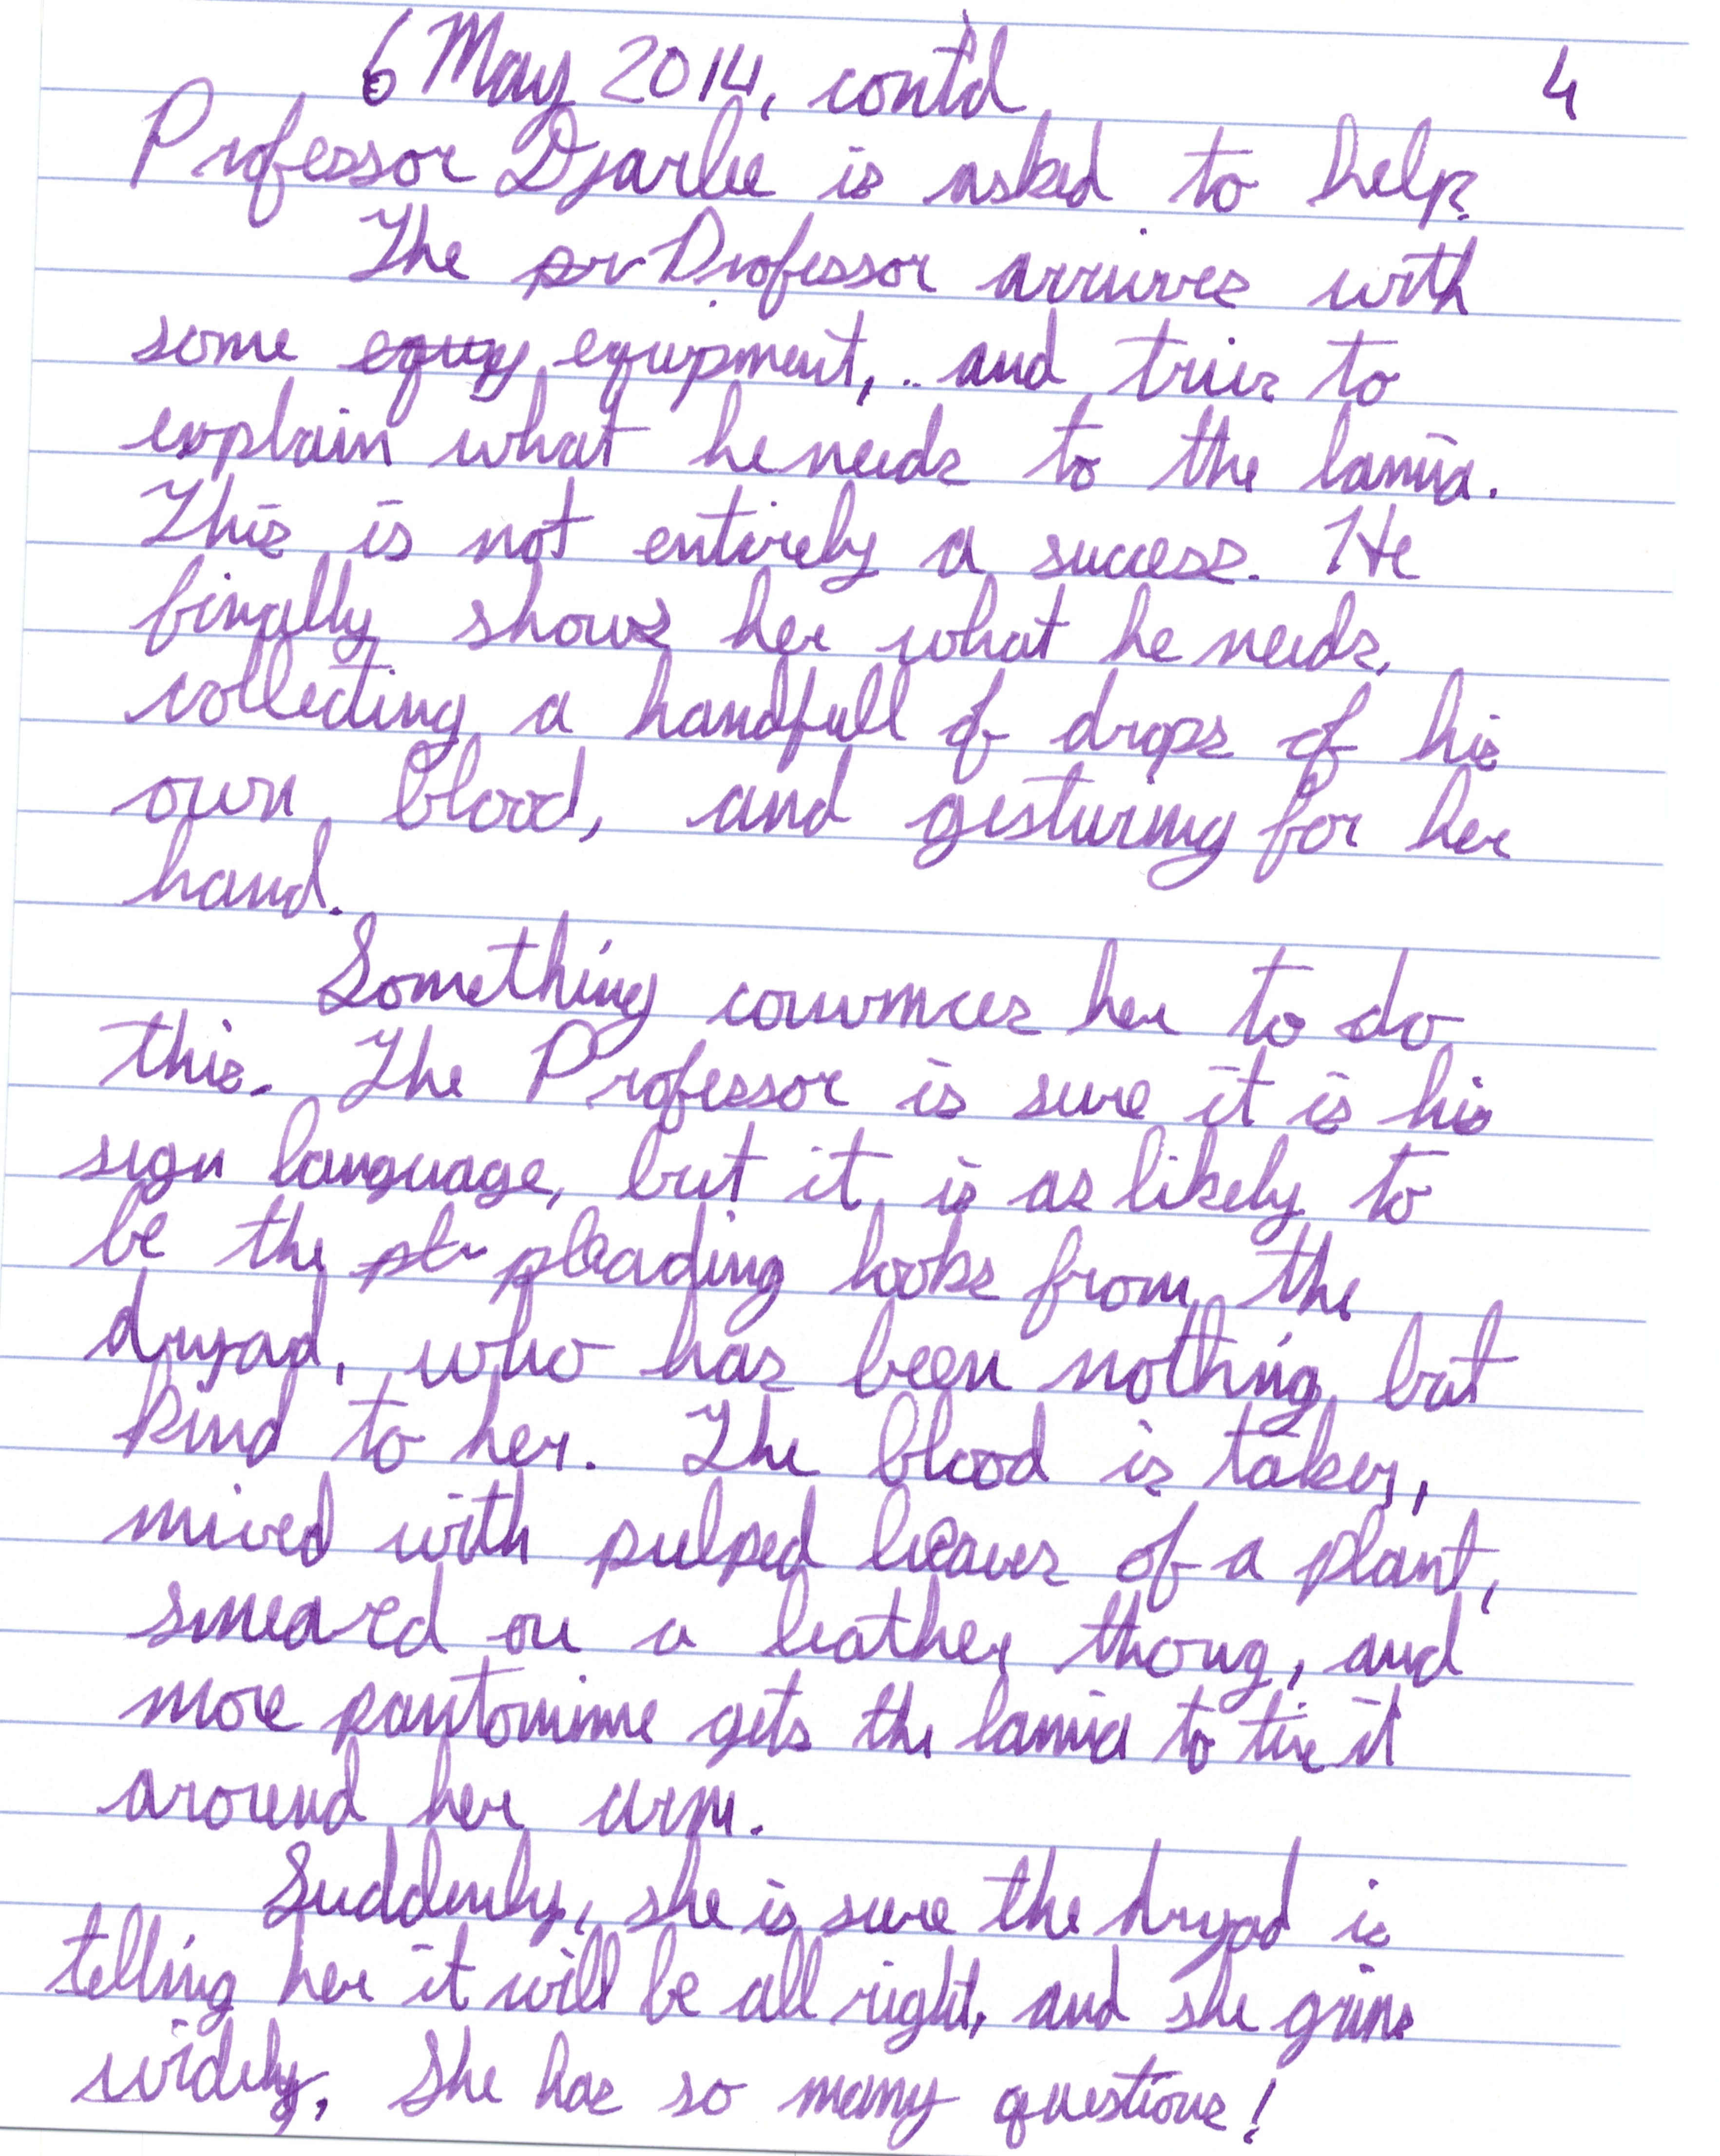 6 May 2014, contd 4
Professor Djarlie is asked to help.
The pr Professor arrives with
some equip equipment, and tries to
explain what he needs to the lamia.
This is not entirely a success. He
finally shows her what he needs,
collecting a handfull of drops of his
own blood, and gesturing for her
hand.
Something convinces her to do
this. The Professor is sure it is his
sign language, but it is as likely to
be the pl pleading looks from the
dryad, who has been nothing but
kind to her. The blood is taken,
mixed with pulped leaves of a plant,
smeared on a leather thong, and
more pantomime gets the lamia to tie it
around her arm.
Suddenly, she is sure the dryad is
telling her it will be all right, and she grins
widely. She has so many questions!